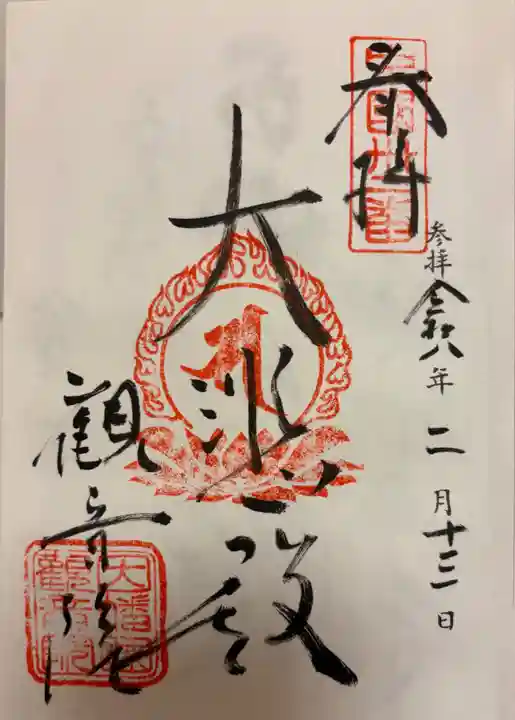 奉拝
参拝 令和八年 二月十三日
大悲殿
觀音院